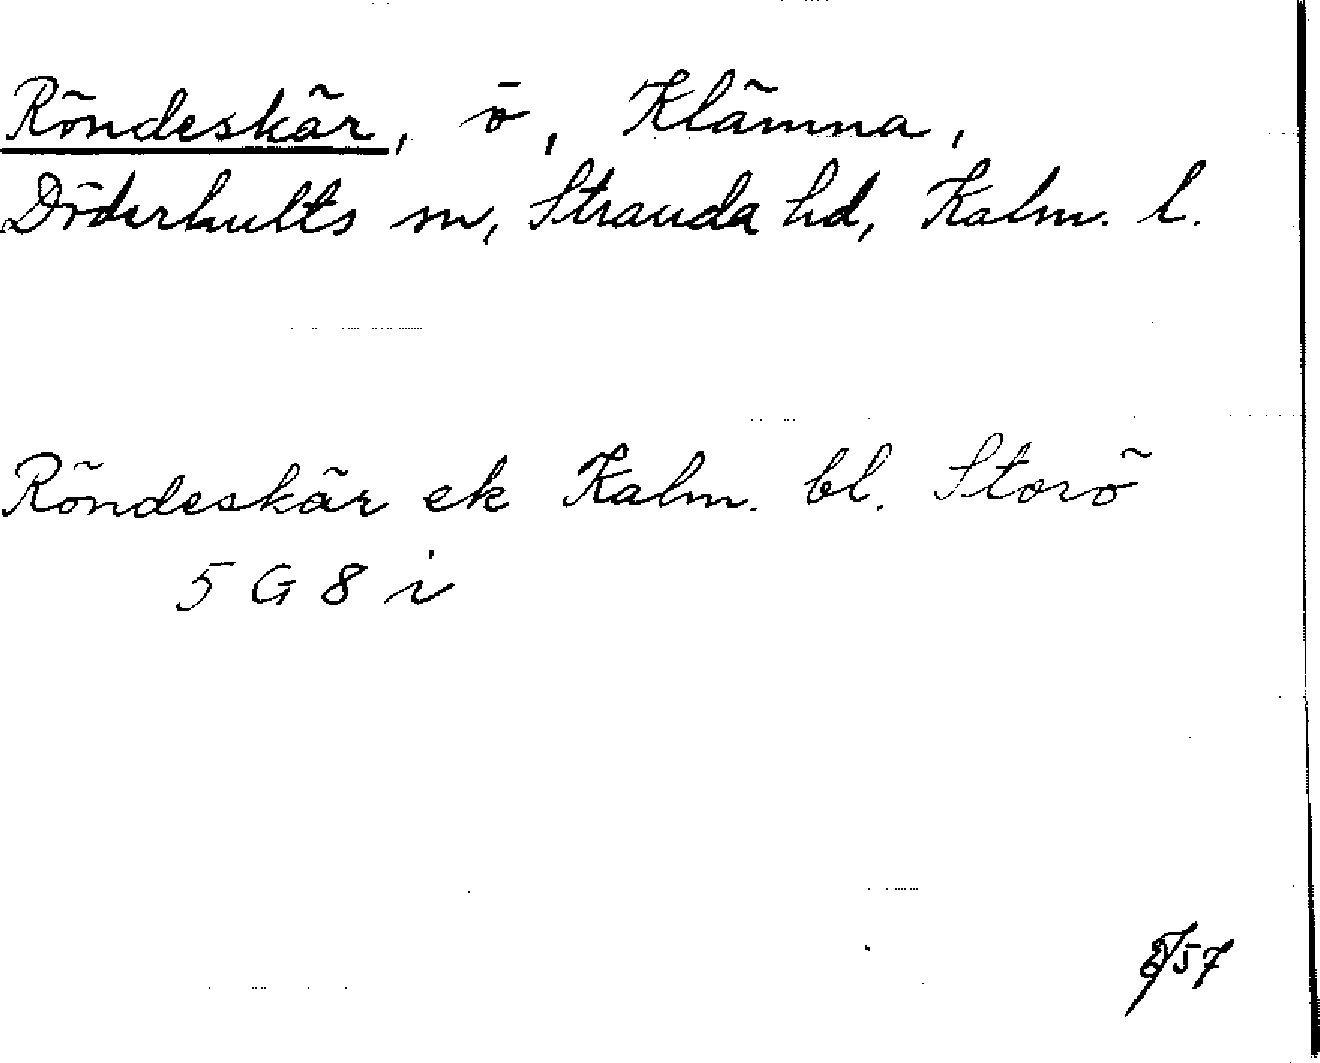 Röndeskär, ö, Klämna,
Döderhults sn, Stranda hd, Kalm. l.
Röndeskär ek Kalm. bl. Storö
5 G 8 i